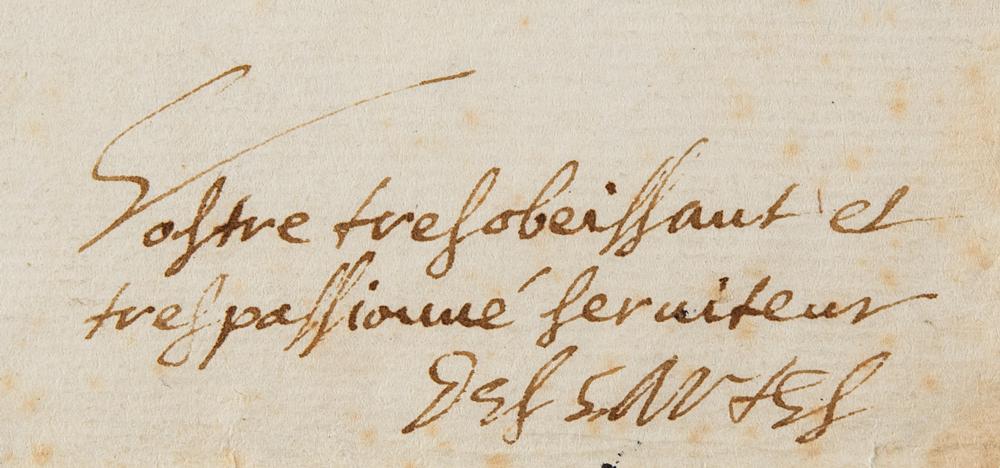 Vostre tresobeissant et
trespassionné seruiteur
Descartes